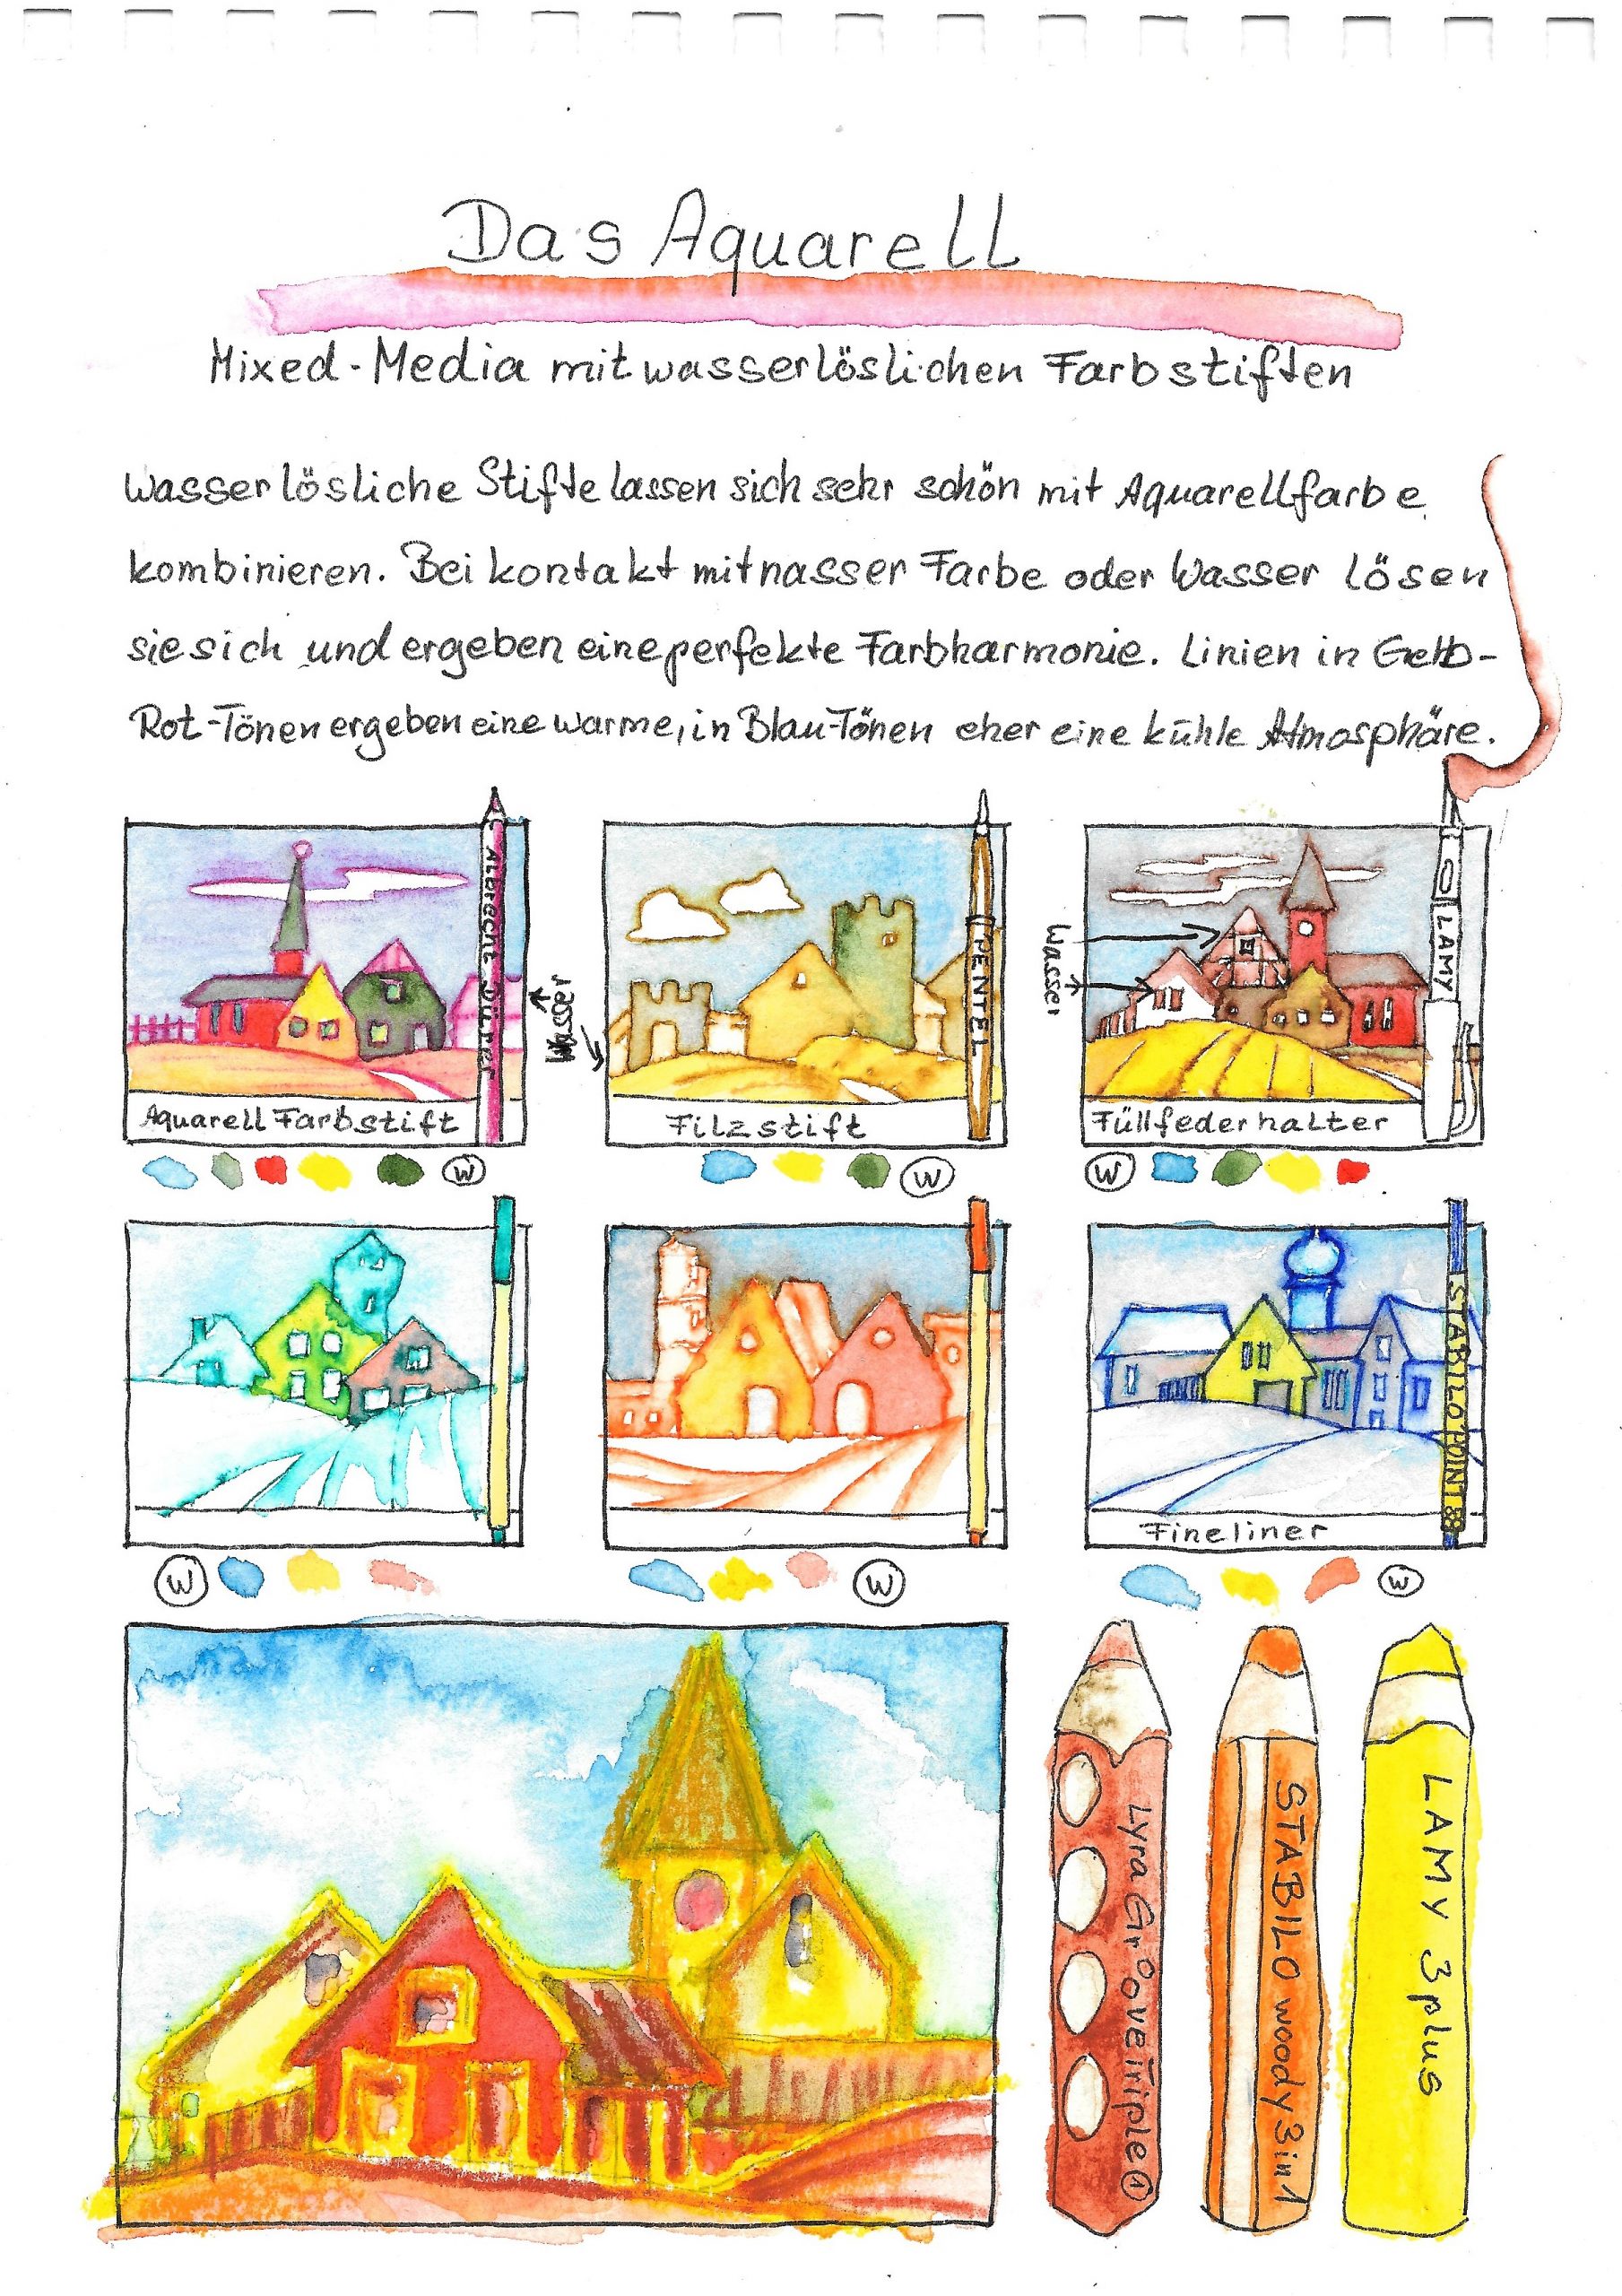 Das Aquarell
Mixed-Media mit wasserlöslichen Farbstiften
Wasserlösliche Stifte lassen sich sehr schön mit Aquarellfarbe
kombinieren. Bei kontakt mit nasser Farbe oder Wasser lösen
sie sich und ergeben eine perfekte Farbharmonie. Linien in Gelb-
Rot-Tönen ergeben eine warme, in Blau-Tönen eher eine kühle Atmosphäre.
ALBRECHT DÜRER
Wasser
PENTEL
Wasser
LAMY
Aquarell Farbstift
Filzstift
Füllfederhalter
W
W
W
STABILO POINT 88
Fineliner
W
W
W
Lyra Groove Triple 1
STABILO woody 3 in 1
LAMY 3 plus